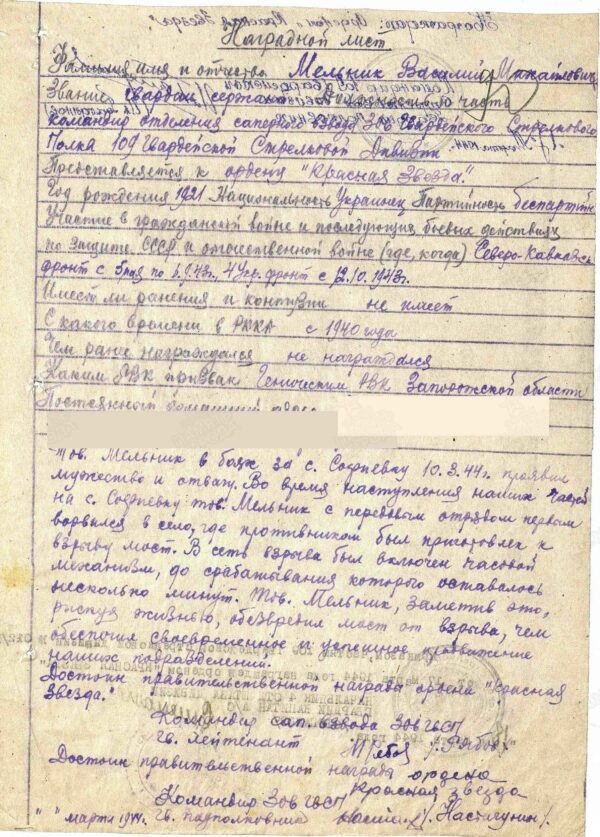 Наградной лист
Фамилия имя и отчество Мельник Василий Михайлович
Звание гвардии сержант
командир отделения саперного взвода 306 Гвардейского Стрелкового
Полка 109 Гвардейской Стрелковой Дивизии
Представляется к ордену "Красная Звезда"
Год рождения 1921 Национальность Украинец Партийность беспартийн
Участие в гражданской войне и последующих боевых действиях
по защите СССР и отечественной войне (где, когда) Северо-Кавказск
фронт с 5 мая по 6.9.43г., 4 Укр. фронт с 12.10.1943г.
Имеет ли ранения и контузии не имеет
С какого времени в РККА с 1940 года
Чем ранее награждался не награждался
Каким РВК призван Геническим РВК Запорожской области
Постоянный домашний адрес
тов. Мельник в боях за с. Софиевку 10.3.44г. проявил
мужество и отвагу. Во время наступления наших частей
на с. Софиевку тов. Мельник с передовым отрядом первым
ворвался в село, где противником был приготовлен к
взрыву мост. В сеть взрыва был включен часовой
механизм, до срабатывания которого оставалось
несколько минут. Тов. Мельник, заметив это,
рискуя жизнью, обезвредил мост от взрыва, чем
обеспечил своевременное и успешное продвижение
наших подразделений.
Достоин правительственной награды ордена "Красная
Звезда."
Командир сап. взвода 306 ГвСП
гв. лейтенант /Рябов/
Достоин правительственной награды ордена
Красная Звезда
Командир 306 ГвСП
" " марта 1944г. гв. подполковник /Настагунин/.